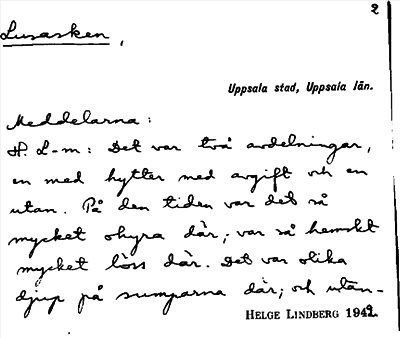 2
Lusasken,
Uppsala stad, Uppsala län.
Meddelarna:
H. L-m: Det var två avdelningar,
en med hytter med avgift och en
utan. På den tiden var det så
mycket ohyra där; var så hemskt
mycket löss där. Det var olika
djup på sumparna där; och utan-
HELGE LINDBERG 1942.